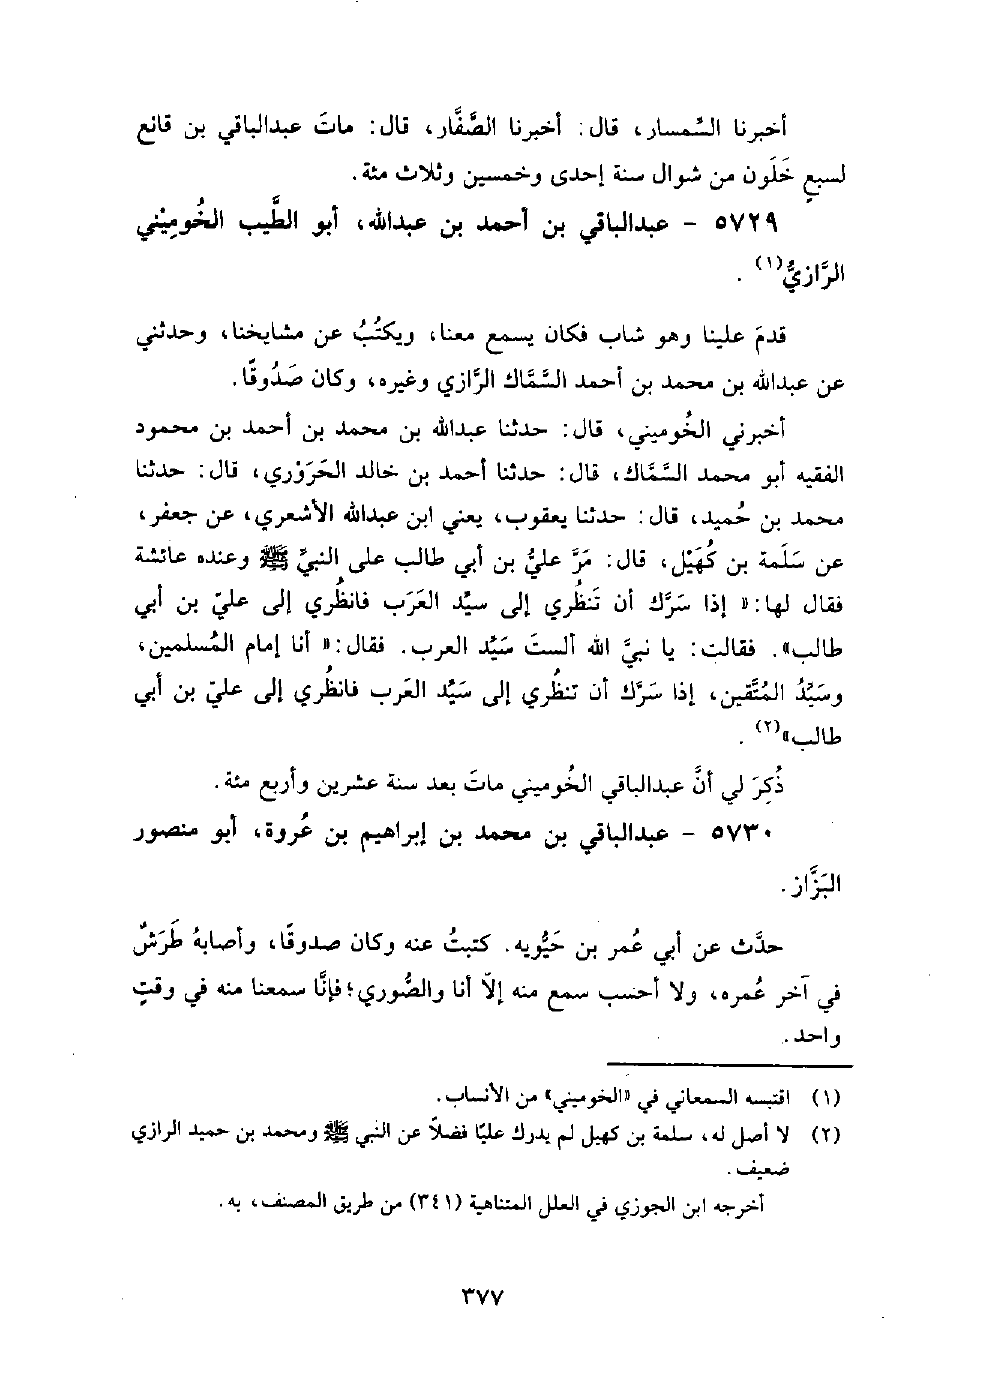 أخبرنا السِّمسار، قال: أخبرنا الصَّفَّار، قال: ماتَ عبدالباقي بن قانع
لسبعٍ خَلَون من شوال سنة إحدى وخمسين وثلاث مئة.
٥٧٢٩ - عبدالباقي بن أحمد بن عبدالله، أبو الطَّيب الخُومِيْني
الرَّازيُّ(١) .
قدمَ علينا وهو شاب فكان يسمع معنا، ويكتُبُ عن مشايخنا، وحدثني
عن عبدالله بن محمد بن أحمد السَّمَّاك الرَّازي وغيره، وكان صَدُوقًا.
أخبرني الخُوميني، قال: حدثنا عبدالله بن محمد بن أحمد بن محمود
الفقيه أبو محمد السَّمَّاك، قال: حدثنا أحمد بن خالد الحَرَوْري، قال: حدثنا
محمد بن حُميد، قال: حدثنا يعقوب، يعني ابن عبدالله الأشعري، عن جعفر،
عن سَلَمة بن كُهَيْل، قال: مَرَّ عليُّ بن أبي طالب على النبيِّ ﷺ وعنده عائشة
فقال لها: « إذا سَرَّك أن تَنظُري إلى سيِّد العَرَب فانظُري إلى عليّ بن أبي
طالب». فقالت: يا نبيَّ الله ألستَ سَيِّد العرب. فقال: « أنا إمام المُسلمين،
وسَيِّدُ المُتَّقين، إذا سَرَّك أن تنظُري إلى سَيِّد العَرب فانظُري إلى عليّ بن أبي
طالب»(٢) .
ذُكِرَ لي أنَّ عبدالباقي الخُوميني ماتَ بعد سنة عشرين وأربع مئة.
٥٧٣٠ - عبدالباقي بن محمد بن إبراهيم بن عُروة، أبو منصور
البَزَّاز.
حدَّث عن أبي عُمر بن حَيُّويه. كتبتُ عنه وكان صدوقًا، وأصابهُ طَرَشٌ
في آخر عُمره، ولا أحسب سمع منه إلاّ أنا والصُّوري؛ فإنَّا سمعنا منه في وقتٍ
واحد.
(١) اقتبسه السمعاني في «الخوميني» من الأنساب.
(٢) لا أصل له، سلمة بن كهيل لم يدرك عليًا فضلاً عن النبي ﷺ ومحمد بن حميد الرازي
ضعيف.
أخرجه ابن الجوزي في العلل المتناهية (٣٤١) من طريق المصنف، به.
٣٧٧